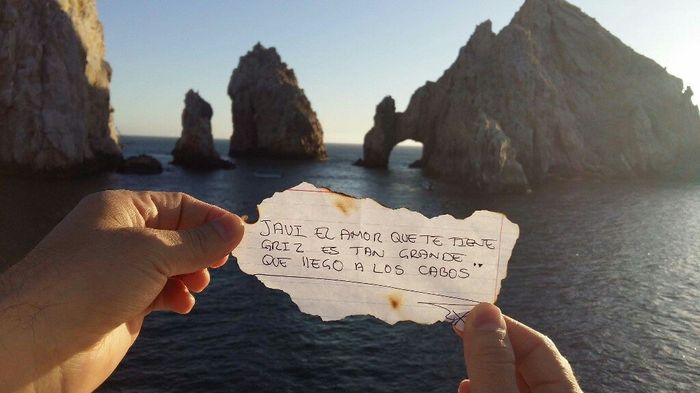 JAVI EL AMOR QUE TE TIENE
GRIZ ES TAN GRANDE
QUE llEGO A LOS CABOS"